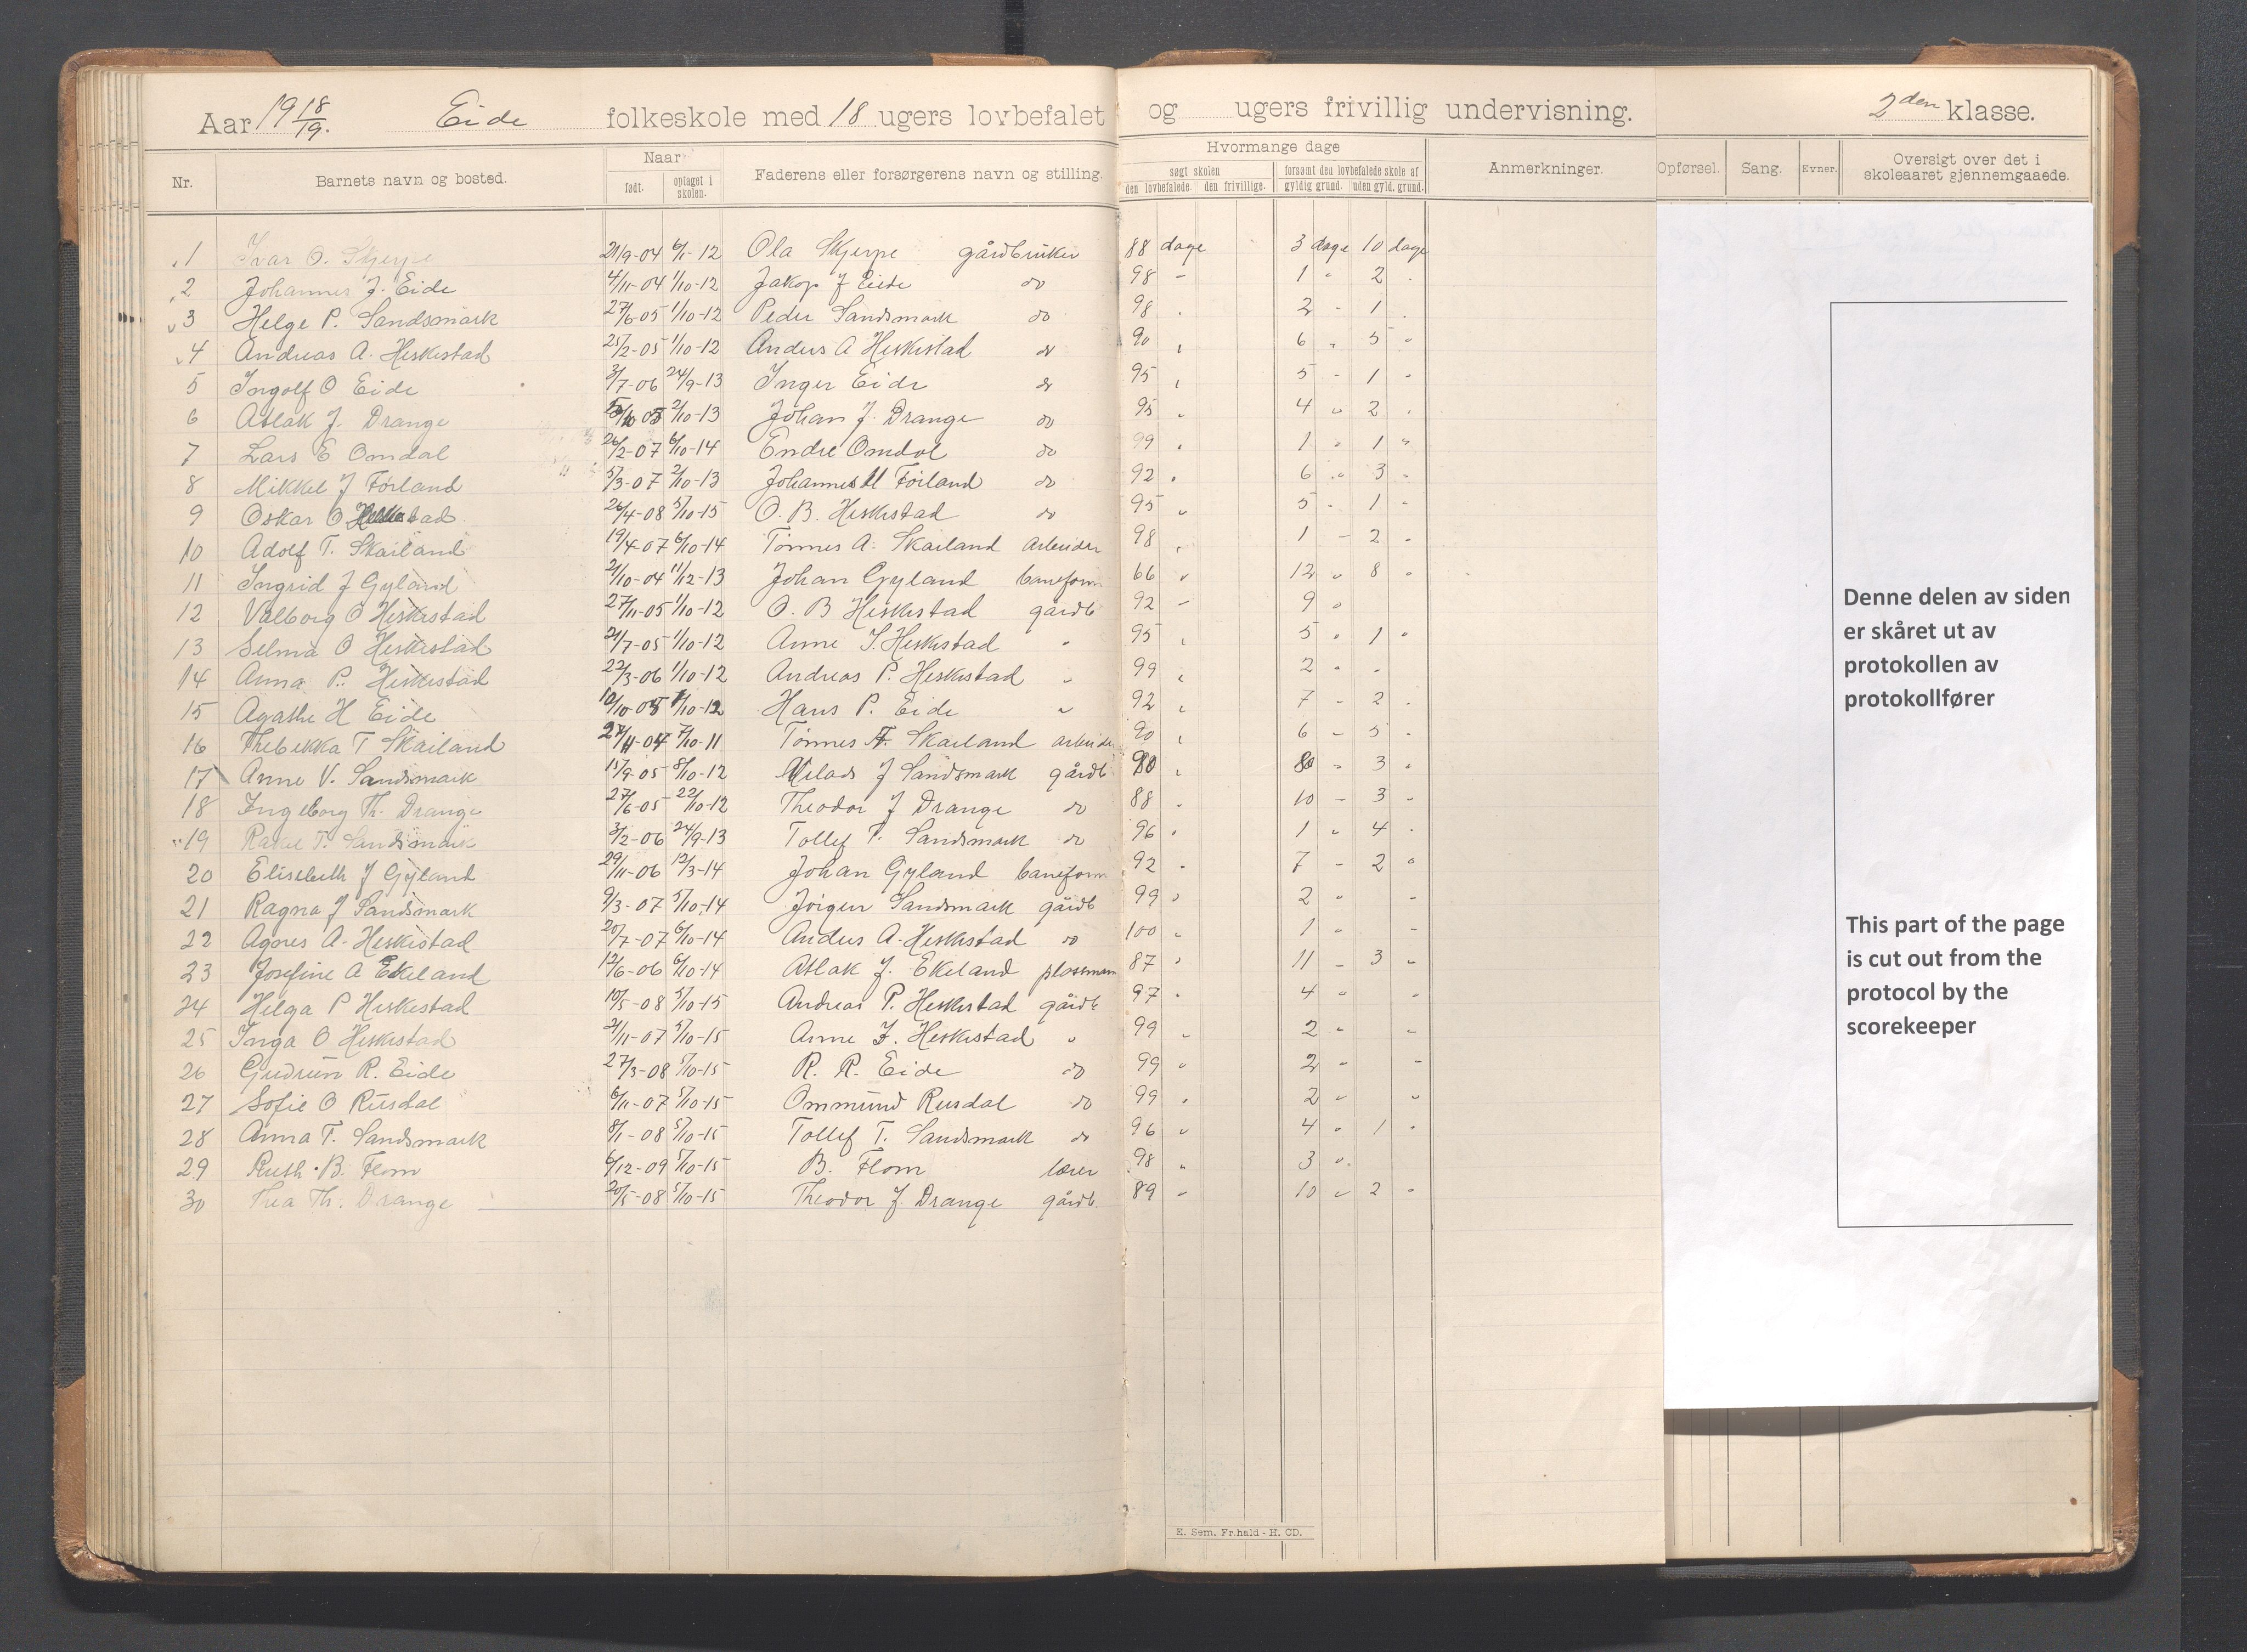 Aar 1918/19. Eide folkeskole med 18 ugers lovbefalet og ugers frivillig undervisning. 2den klasse.
Nr. Barnets navn og bosted. Naar født. optaget i skolen. Faderens eller forsørgerens navn og stilling. Hvormange dage søgt skolen den lovbefalede. den frivillige. forsømt den lovbefalede skole af gyldig grund. uden gyld. grund. Anmerkninger. Opførsel. Sang. Evner. Oversigt over det i skoleaaret gjennemgaaede.
1 Ivar O. Skjerpe 21/9-04 6/1-12 Ola Skjerpe gårdbruker 88 dage 3 dage 10 dage
2 Johannes J. Eide 4/11-04 1/10-12 Jakop J Eide do 98 - 1 " 2 .
3 Helge P. Sandsmark 27/6-05 1/10-12 Peder Sandsmark do 98 . 2 - 1 .
4 Andreas A. Heskestad 25/2-05 1/10-12 Anders A Heskestad do 90 , 6 " 5 "
5 Ingolf O Eide 3/7-06 24/9-13 Inger Eide do 95 , 5 - 1 -
6 Aslak J. Drange 2/10-13 Johan J. Drange do 95 " 4 " 2 .
7 Lars E Omdal 26/2-07 6/10-14 Endre Omdal do 99 . 1 " 1 "
8 Mikkel J Førland 5/3-07 2/10-13 Johannes M Førland do 92 . 6 " 3 -
9 Oskar O Heskestad 26/4-08 5/10-15 O. B. Heskestad do 95 " 5 - 1 -
10 Adolf T. Skailand 19/4-07 6/10-14 Tønnes A. Skailand arbeider 98 , 1 - 2 -
11 Ingrid J Gyland 21/10-04 11/12-13 Johan Gyland baneform 66 " 12 " 8 "
12 Valborg O Heskestad 27/11-05 1/10-12 O. B Heskestad gårdb 92 - 9 "
13 Selma O Heskestad 21/7-05 1/10-12 Anne J. Heskestad " 95 , 5 " 1 "
14 Anna P. Heskestad 22/3-06 1/10-12 Andreas P. Heskestad " 99 , 2 " -
15 Agathe H Eide 10/10-05 1/10-12 Hans P. Eide " 92 , 7 - 2 .
16 Thebekka T Skailand 27/11-04 7/10-11 Tønnes A. Skailand arbeider 90 , 6 - 5 -
17 Anne V. Sandsmark 15/9-05 8/10-12 J Sandsmark gårdb , 3 "
18 Ingeborg Th. Drange 27/6-05 22/10-12 Theodor J Drange do 88 " 10 - 3 -
19 Rakel T. Sandsmark 3/2-06 24/9-13 Tollef T. Sandsmark do 96 . 1 " 4 .
20 Elisebeth J Gyland 29/11-06 12/3-14 Johan Gyland baneform 92 - 7 - 2 "
21 Ragna J Sandsmark 9/3-07 5/10-14 Jørgen Sandsmark gårdb 99 " 2 " -
22 Agnes A. Heskestad 20/7-07 6/10-14 Anders A. Heskestad do 100 " 1 " -
23 Josefine A Ekeland 12/6-06 6/10-14 Aslak J. Ekeland plassman 87 " 11 - 3 -
24 Helga P Heskestad 10/5-08 5/10-15 Andreas P. Heskestad gårdb 97 . 4 " "
25 Inga O Heskestad 21/11-07 5/10-15 Anne J. Heskestad " 99 " 2 " -
26 Gudrun R. Eide 27/3-08 5/10-15 R. R. Eide do 99 " 2 " -
27 Sofie O Rusdal 6/11-07 5/10-15 Ommund Rusdal do 99 . 2 " "
28 Anna T. Sandsmark 8/1-08 5/10-15 Tollef T. Sandsmark do 96 " 4 " 1 "
29 Ruth B. Flom 6/12-09 5/10-15 B. Flom lærer 98 " 3 "
30 Thea Th. Drange 20/5-08 5/10-15 Theodor J. Drange gårdb. 89 - 10 " 2 -
E. Sem. Fr.hald - H. CD.
Denne delen av siden
er skåret ut av
protokollen av
protokollfører
This part of the page
is cut out from the
protocol by the
scorekeeper